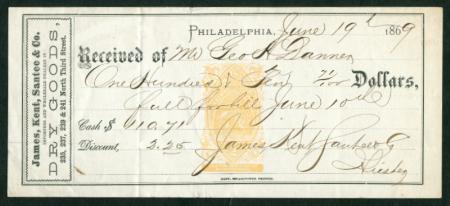 James, Kent, Santee & Co.
IMPORTERS AND WHOLESALE DEALERS IN
DRY GOODS,
235, 237, 239 & 241 North Third Street.
PHILADELPHIA, June 19th 1869
Received of Mr Geo H Danner
One Hundred & Ten 71/100 Dollars,
full for bill June 10th
Cash $ 110.71
Discount, 2.25 James Kent Santee & Co